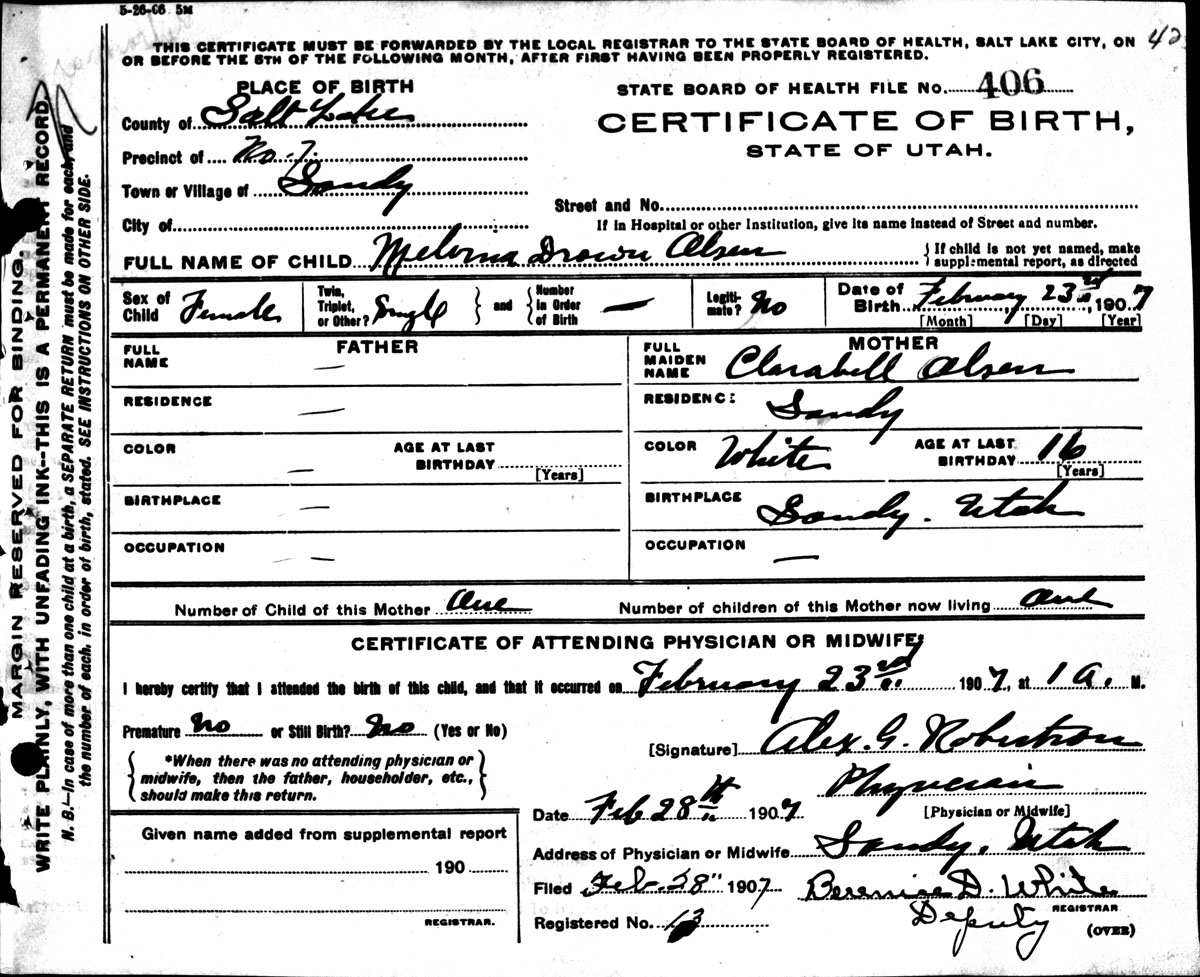 5-26-06 5M
42
THIS CERTIFICATE MUST BE FORWARDED BY THE LOCAL REGISTRAR TO THE STATE BOARD OF HEALTH, SALT LAKE CITY, ON
OR BEFORE THE 5TH OF THE FOLLOWING MONTH, AFTER FIRST HAVING BEEN PROPERLY REGISTERED.
PLACE OF BIRTH
STATE BOARD OF HEALTH FILE No. 406
County of Salt Lake
CERTIFICATE OF BIRTH,
Precinct of No. 7.
STATE OF UTAH.
Town or Village of Sandy
Street and No.
City of
If in Hospital or other Institution, give its name instead of Street and number.
FULL NAME OF CHILD Melvina Drown Olsen
{ If child is not yet named, make
supplemental report, as directed
Sex of Child Female
Twin, Triplet, or Other? Single } and { Number in Order of Birth —
Legitimate? No
Date of Birth February 23rd, 1907
[Month] [Day] [Year]
FATHER
MOTHER
FULL NAME —
FULL MAIDEN NAME Clarabell Olsen
RESIDENCE —
RESIDENCE Sandy
COLOR — AGE AT LAST BIRTHDAY [Years]
COLOR White AGE AT LAST BIRTHDAY 16 [Years]
BIRTHPLACE —
BIRTHPLACE Sandy. Utah
OCCUPATION —
OCCUPATION —
Number of Child of this Mother One
Number of children of this Mother now living One
CERTIFICATE OF ATTENDING PHYSICIAN OR MIDWIFE*
I hereby certify that I attended the birth of this child, and that it occurred on February 23rd 1907, at 1 A. M.
Premature No or Still Birth? No (Yes or No)
[Signature] Alex. G. Robertson
{ *When there was no attending physician or
midwife, then the father, householder, etc.,
should make this return. }
Physician
[Physician or Midwife]
Date Feb 28th 1907
Address of Physician or Midwife Sandy, Utah
Filed Feb. 28" 1907 Berenice D. White
REGISTRAR
Deputy
Registered No. 13
(OVER)
Given name added from supplemental report
190
REGISTRAR.
MARGIN RESERVED FOR BINDING.
WRITE PLAINLY, WITH UNFADING INK--THIS IS A PERMANENT RECORD.
N. B.—In case of more than one child at a birth, a SEPARATE RETURN must be made for each, and
the number of each, in order of birth, stated. SEE INSTRUCTIONS ON OTHER SIDE.